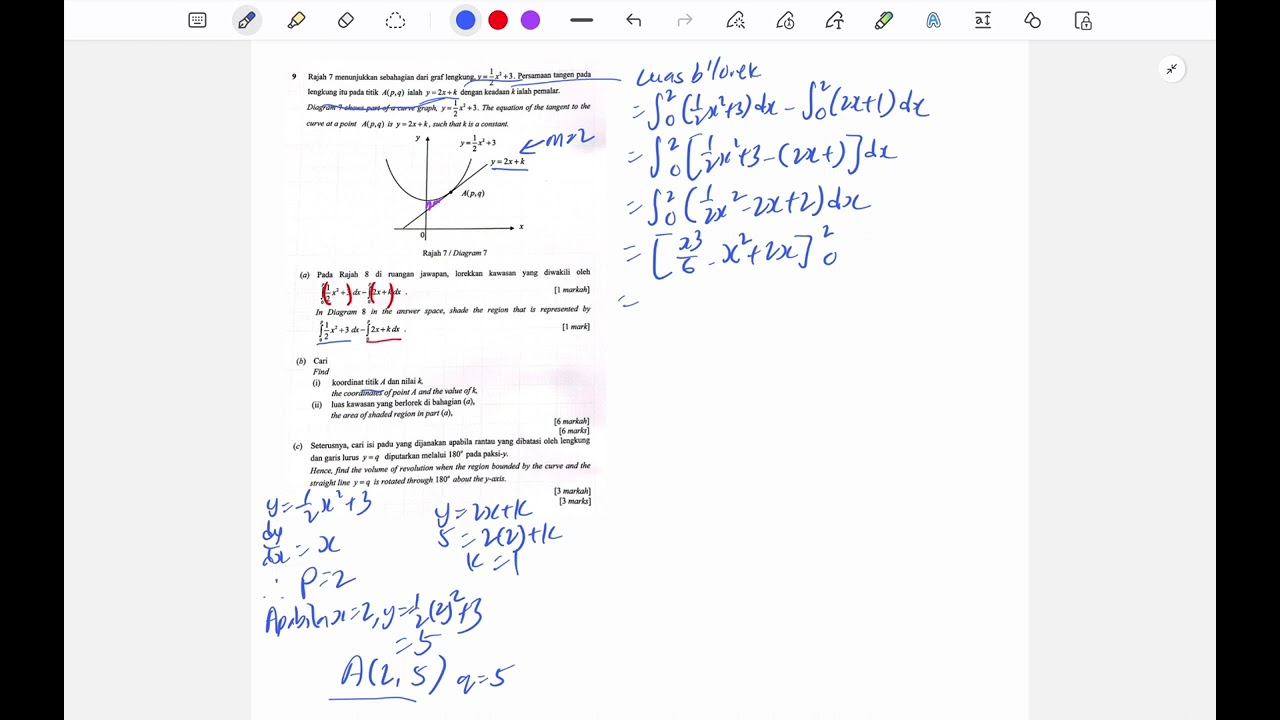 9 Rajah 7 menunjukkan sebahagian dari graf lengkung, y = 1/2 x² + 3. Persamaan tangen pada
lengkung itu pada titik A(p,q) ialah y = 2x + k dengan keadaan k ialah pemalar.
Diagram 7 shows part of a curve graph, y = 1/2 x² + 3. The equation of the tangent to the
curve at a point A(p,q) is y = 2x + k, such that k is a constant.
y
y = 1/2 x² + 3
m=2
y = 2x + k
A(p,q)
0
x
Rajah 7 / Diagram 7
(a) Pada Rajah 8 di ruangan jawapan, lorekkan kawasan yang diwakili oleh
[1 markah]
In Diagram 8 in the answer space, shade the region that is represented by
∫ 1/2 x² + 3 dx − ∫ 2x + k dx .
[1 mark]
(b) Cari
Find
(i) koordinat titik A dan nilai k,
the coordinates of point A and the value of k,
(ii) luas kawasan yang berlorek di bahagian (a),
the area of shaded region in part (a),
[6 markah]
[6 marks]
(c) Seterusnya, cari isi padu yang dijanakan apabila rantau yang dibatasi oleh lengkung
dan garis lurus y = q diputarkan melalui 180° pada paksi-y.
Hence, find the volume of revolution when the region bounded by the curve and the
straight line y = q is rotated through 180° about the y-axis.
[3 markah]
[3 marks]
y = 1/2 x² + 3
dy/dx = x
∴ P = 2
Apabila x = 2, y = 1/2 (2)² + 3
= 5
A(2, 5) q = 5
y = 2x + k
5 = 2(2) + k
k = 1
Luas b'lorek
= ∫₀² (1/2 x² + 3) dx − ∫₀² (2x + 1) dx
= ∫₀² [1/2 x² + 3 − (2x+)] dx
= ∫₀² (1/2 x² − 2x + 2) dx
= [x3/6 − x² + 2x]₀²
=